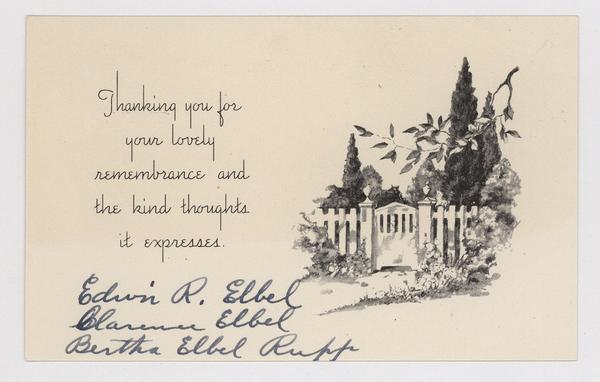 Thanking you for
your lovely
remembrance and
the kind thoughts
it expresses.
Edwin R. Elbel
Clarence Elbel
Bertha Elbel Rupp